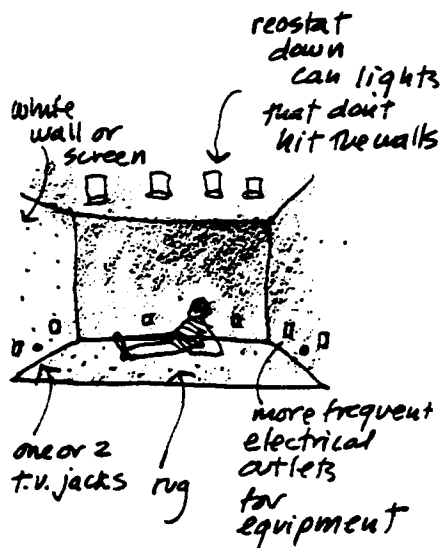 reostat
down
can lights
that don't
hit the walls
white
wall or
screen
one or 2
t.v. jacks
rug
more frequent
electrical
outlets
for
equipment